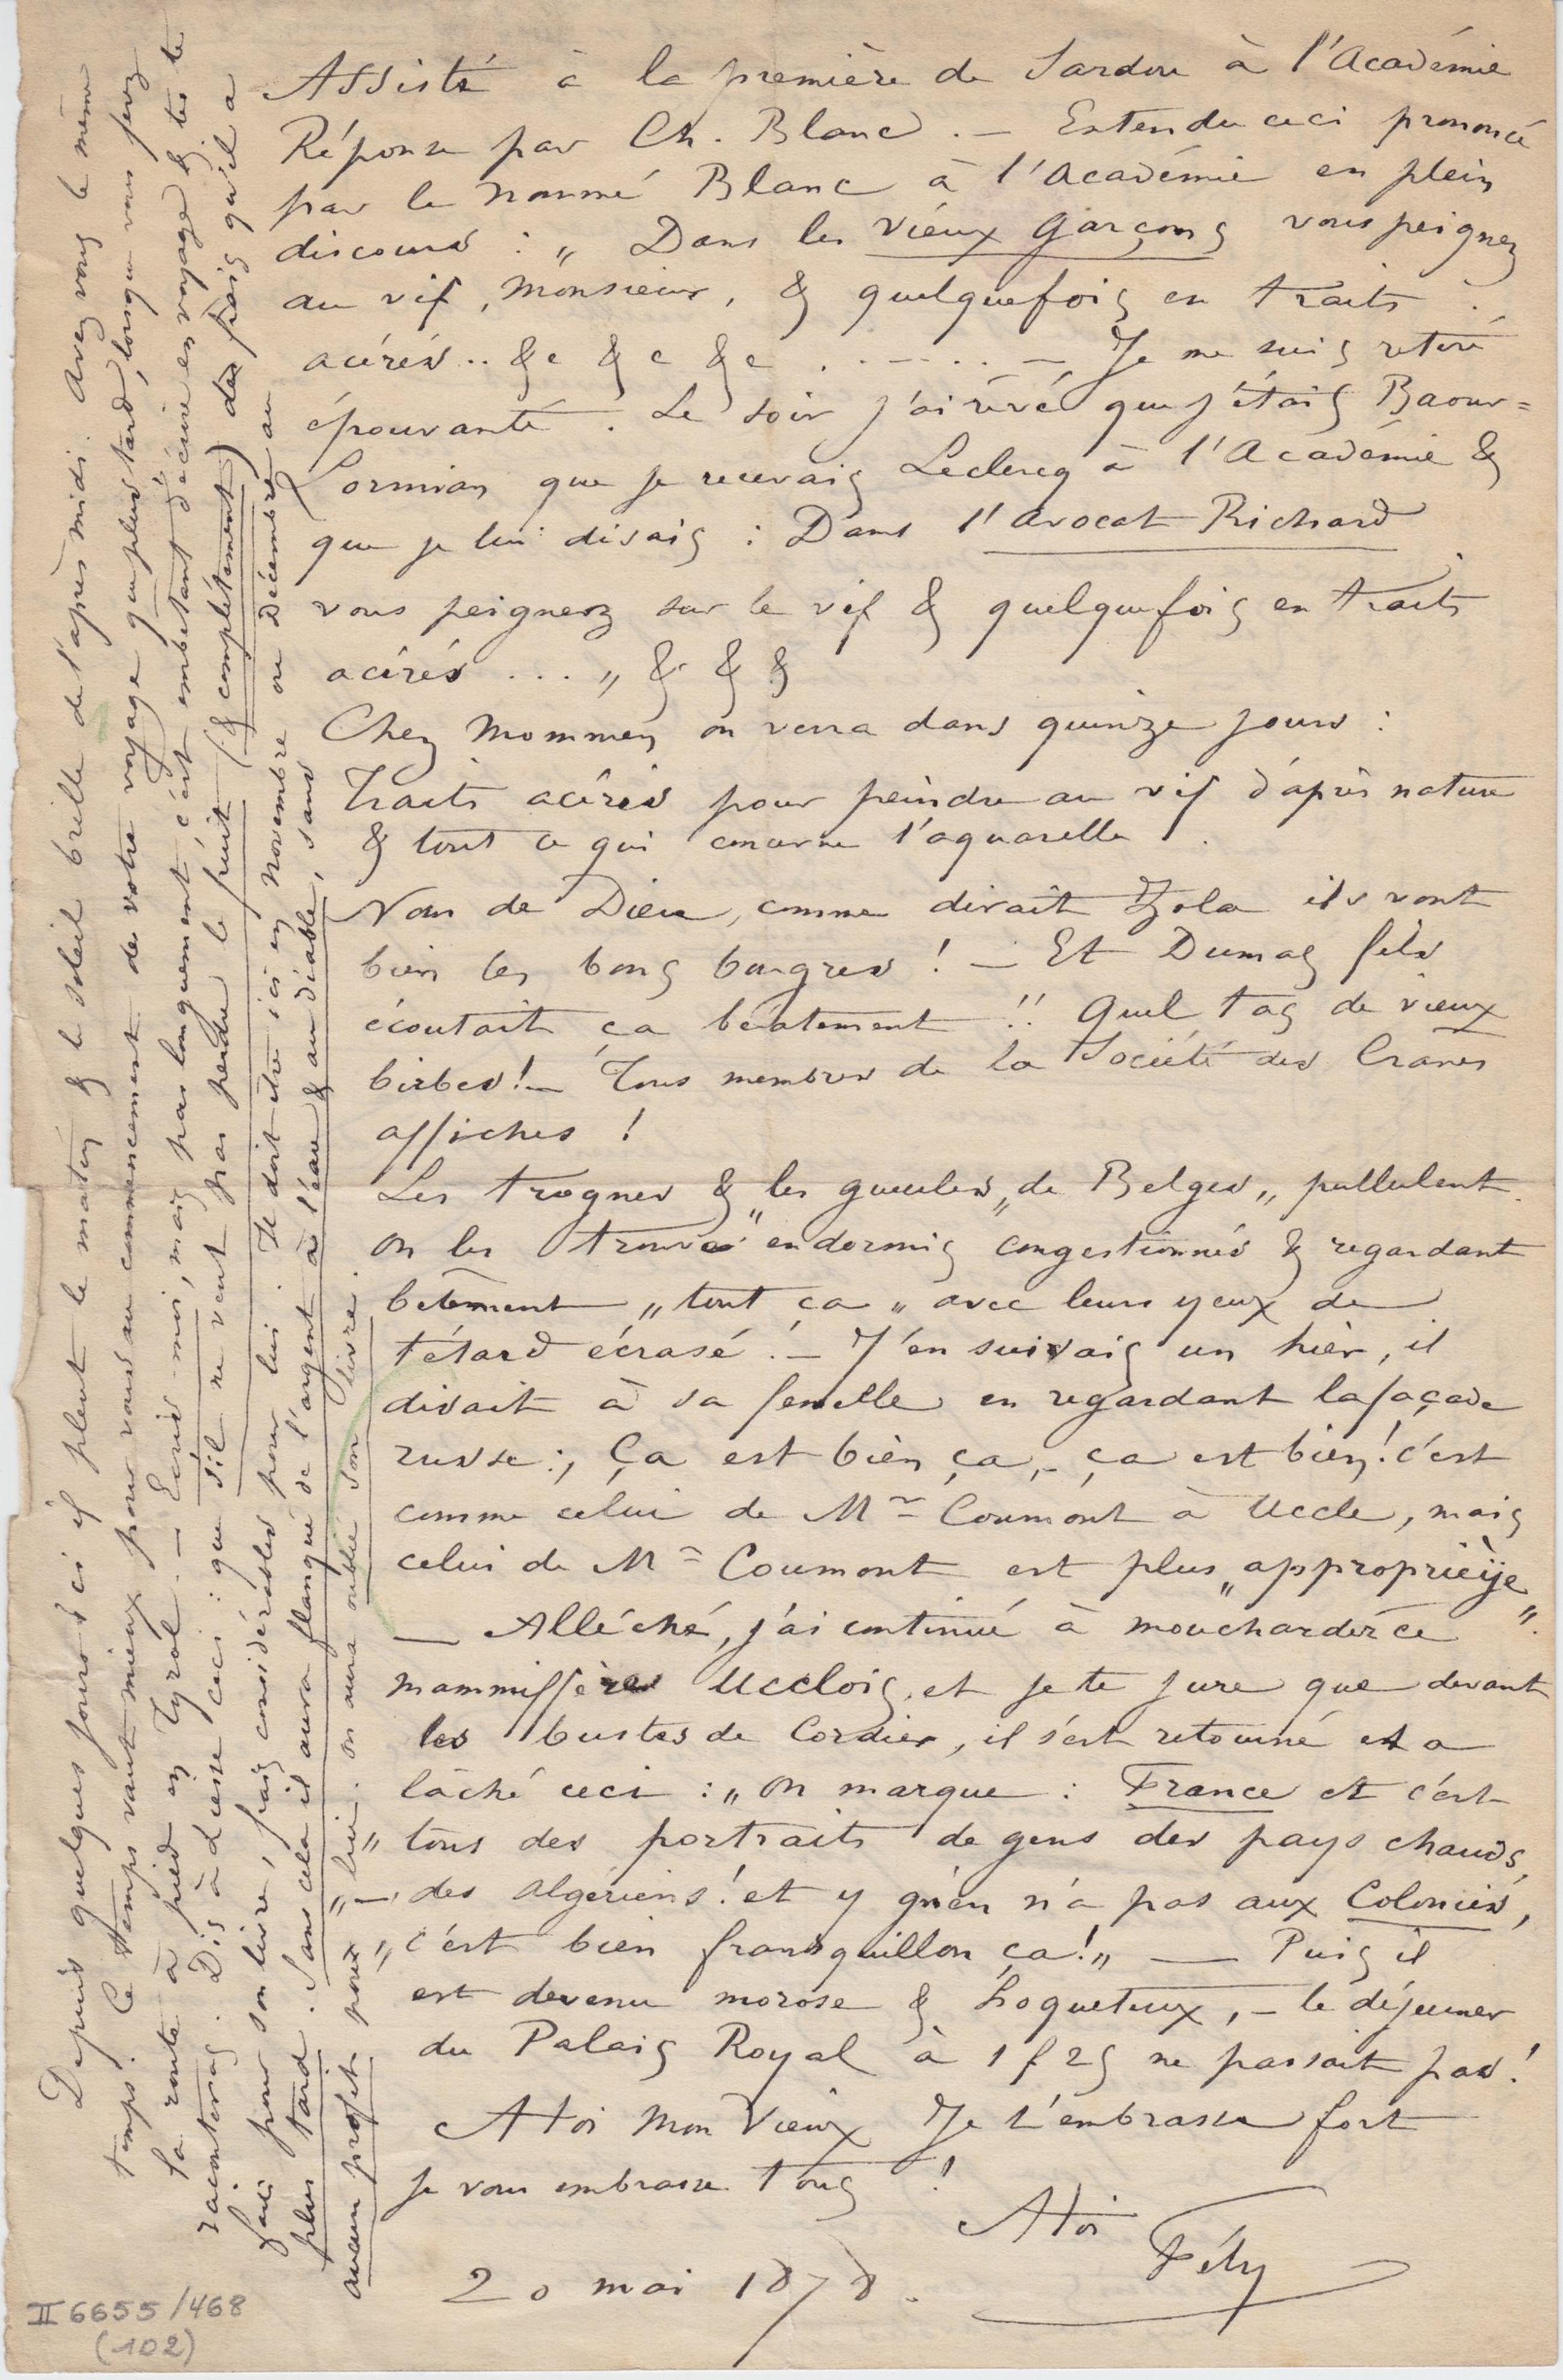 Assisté à la première de Sardou à l'Académie
Réponse par Ch. Blanc. — Entendu ceci prononcé
par le nommé Blanc à l'Académie en plein
discours : „ Dans les vieux garçons vous peignez
au vif, monsieur, & quelquefois en traits
acérés .. &c &c &c . . . . . — Je me suis retiré
épouvanté. Le soir j'ai rêvé que j'étais Baour=
Lormian que je recevais Leclercq à l'Académie &
que je lui disais : Dans l'avocat Richard
vous peignez sur le vif & quelquefois en traits
acérés ... „ & & &
Chez Mommen on verra dans quinze jours :
Traits acérés pour peindre au vif d'après nature
& tout ce qui concerne l'aquarelle.
Nom de Dieu, comme dirait Zola ils vont
bien les bons bougres ! — Et Dumas fils
écoutait ça béatement !! Quel tas de vieux
birbes ! — Tous membres de la Société des Cranes
affiches !
Les trognes & „les gueules„ de Belges„ pullulent.
On les trouve endormis congestionnés & regardant
bêtement „tout ça„ avec leurs yeux de
têtard écrasé ! — J'en suivais un hier, il
disait à sa femelle en regardant la façade
russe : „ Ça est bien ça, — ça est bien ! c'est
comme celui de Mr Coumont à Uccle, mais
celui de Mr Coumont est plus „approprièïje„.
— Alléché, j'ai continué à moucharder ce
mammifère Ucclois, et je te jure que devant
les bustes de Cordier, il s'est retourné et a
lâché ceci : „ On marque : France et c'est
„ tous des portraits de gens des pays chauds,
„ — des algériens ! et y gn'en n'a pas aux Colonies,
„ c'est bien fransquillon ça ! „ — Puis il
est devenu morose & loqueteux, — le déjeuner
du Palais Royal à 1 f 25 ne passait pas !
A toi mon Vieux Je t'embrasse fort
Je vous embrasse tous !
A toi
Fély
20 mai 1878.
Depuis quelques jours ici il pleut le matin & le soleil brille de l'après midi. Avez vous le même
temps. Ce temps vaut mieux pour vous au commencement de votre voyage que plus tard, lorsque vous ferez
la route à pied en Tyrol. — Ecris-moi, mais pas longuement, c'est embêtant d'écrire en voyage & tes te
raconteras. Dis à ceci : que s'il ne veut pas perdre le fruit (& complètement) des frais qu'il a
faits pour son livre, frais considérables pour lui. Il doit être ici en novembre ou décembre au
plus tard. Sans cela il aura flanqué de l'argent à l'eau & au diable, sans
aucun profit pour lui. on aura oublié son livre.
II 6655/468
(102)